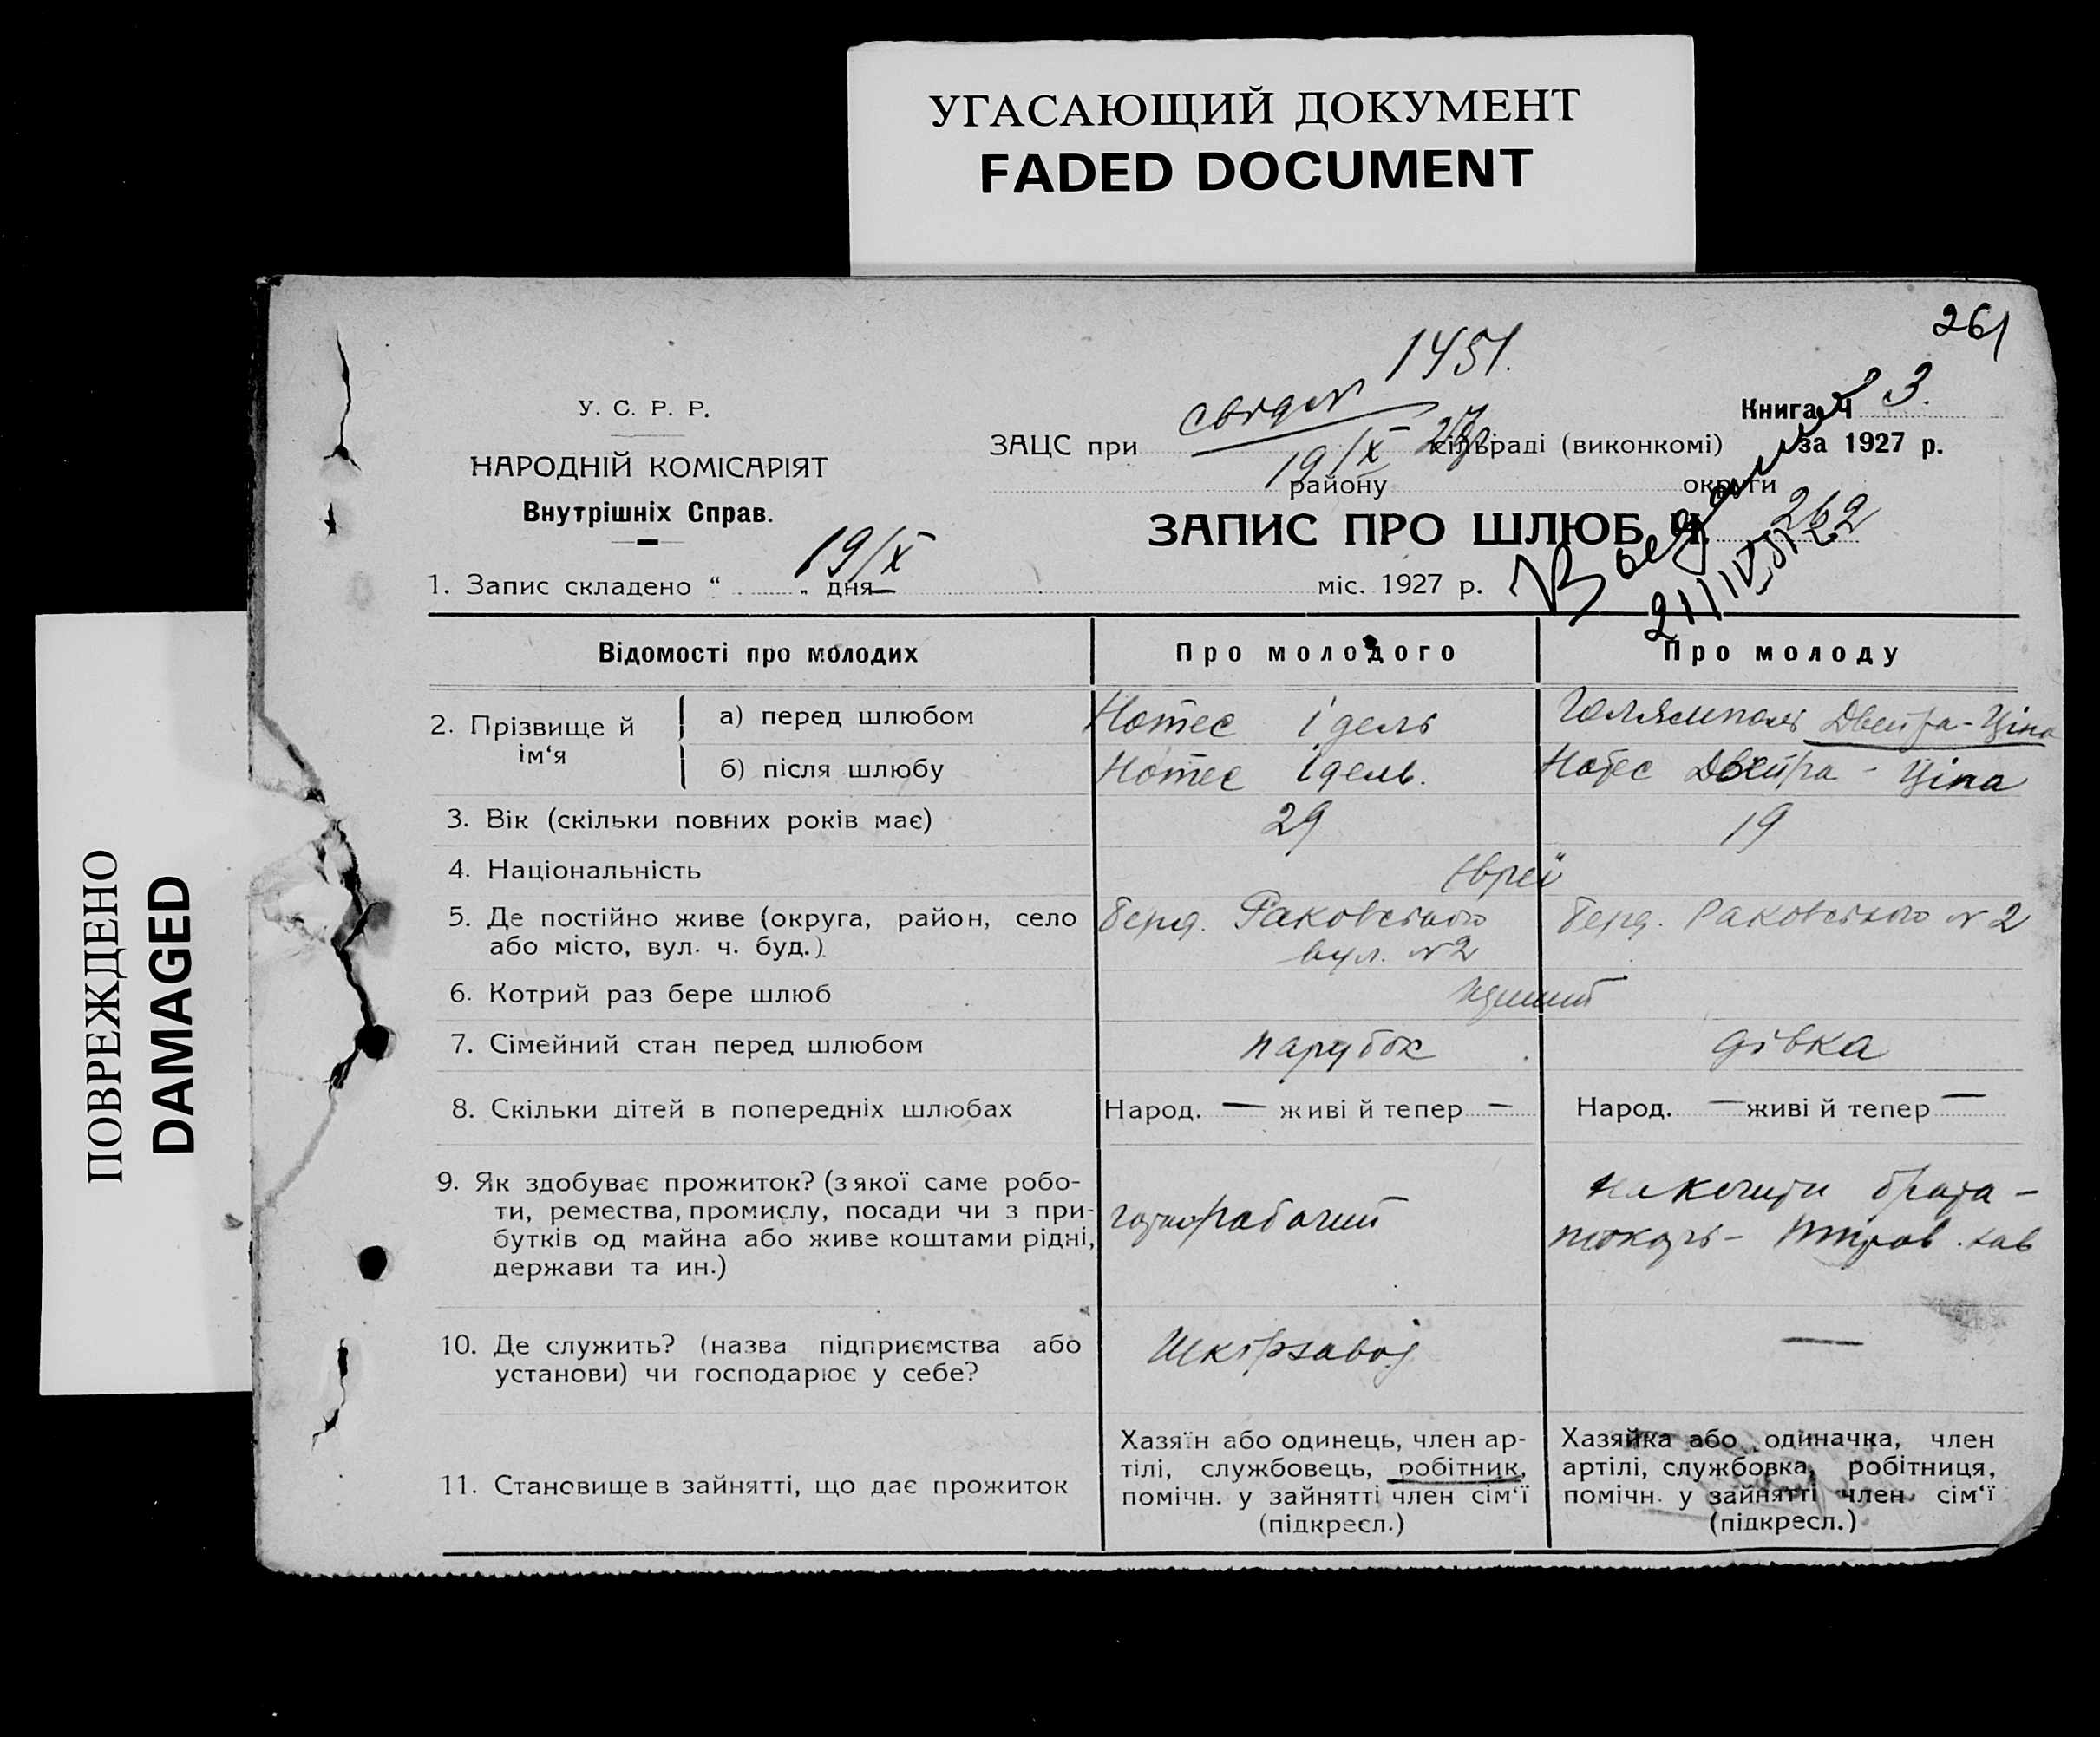 УГАСАЮЩИЙ ДОКУМЕНТ
FADED DOCUMENT
ПОВРЕЖДЕНО
DAMAGED
261
1451.
У. С. Р. Р.
НАРОДНІЙ КОМІСАРІЯТ
Внутрішніх Справ.
Книга Ч 3.
ЗАЦС при сільраді (виконкомі) за 1927 р.
19/IX 27
району округи
ЗАПИС ПРО ШЛЮБ Ч. 262
1. Запис складено “ 19/X „ дня міс. 1927 р.
Відомості про молодих Про молодого Про молоду
2. Прізвище й ім‘я
а) перед шлюбом Нотес Ідель Двейра-Ціпа
б) після шлюбу Нотес Ідель. Нотес Двейра - Ціпа
3. Вік (скільки повних років має) 29 19
4. Національність Євреї
5. Де постійно живе (округа, район, село Берд. Раковського Берд. Раковського № 2
або місто, вул. ч. буд.) вул. № 2
6. Котрий раз бере шлюб
7. Сімейний стан перед шлюбом парубок дівка
8. Скільки дітей в попередніх шлюбах Народ. — живі й тепер — Народ. — живі й тепер —
9. Як здобуває прожиток? (з якої саме робо-
ти, ремества, промислу, посади чи з при-
бутків од майна або живе коштами рідні,
держави та ин.)
рабочий
брата -
токарь -
10. Де служить? (назва підприємства або
установи) чи господарює у себе?
Шкірзавод —
11. Становище в зайнятті, що дає прожиток
Хазяїн або одинець, член ар-
тілі, службовець, робітник,
помічн. у зайнятті член сім‘ї
(підкресл.)
Хазяйка або одиначка, член
артілі, службовка, робітниця,
помічн. у зайнятті член сім‘ї
(підкресл.)